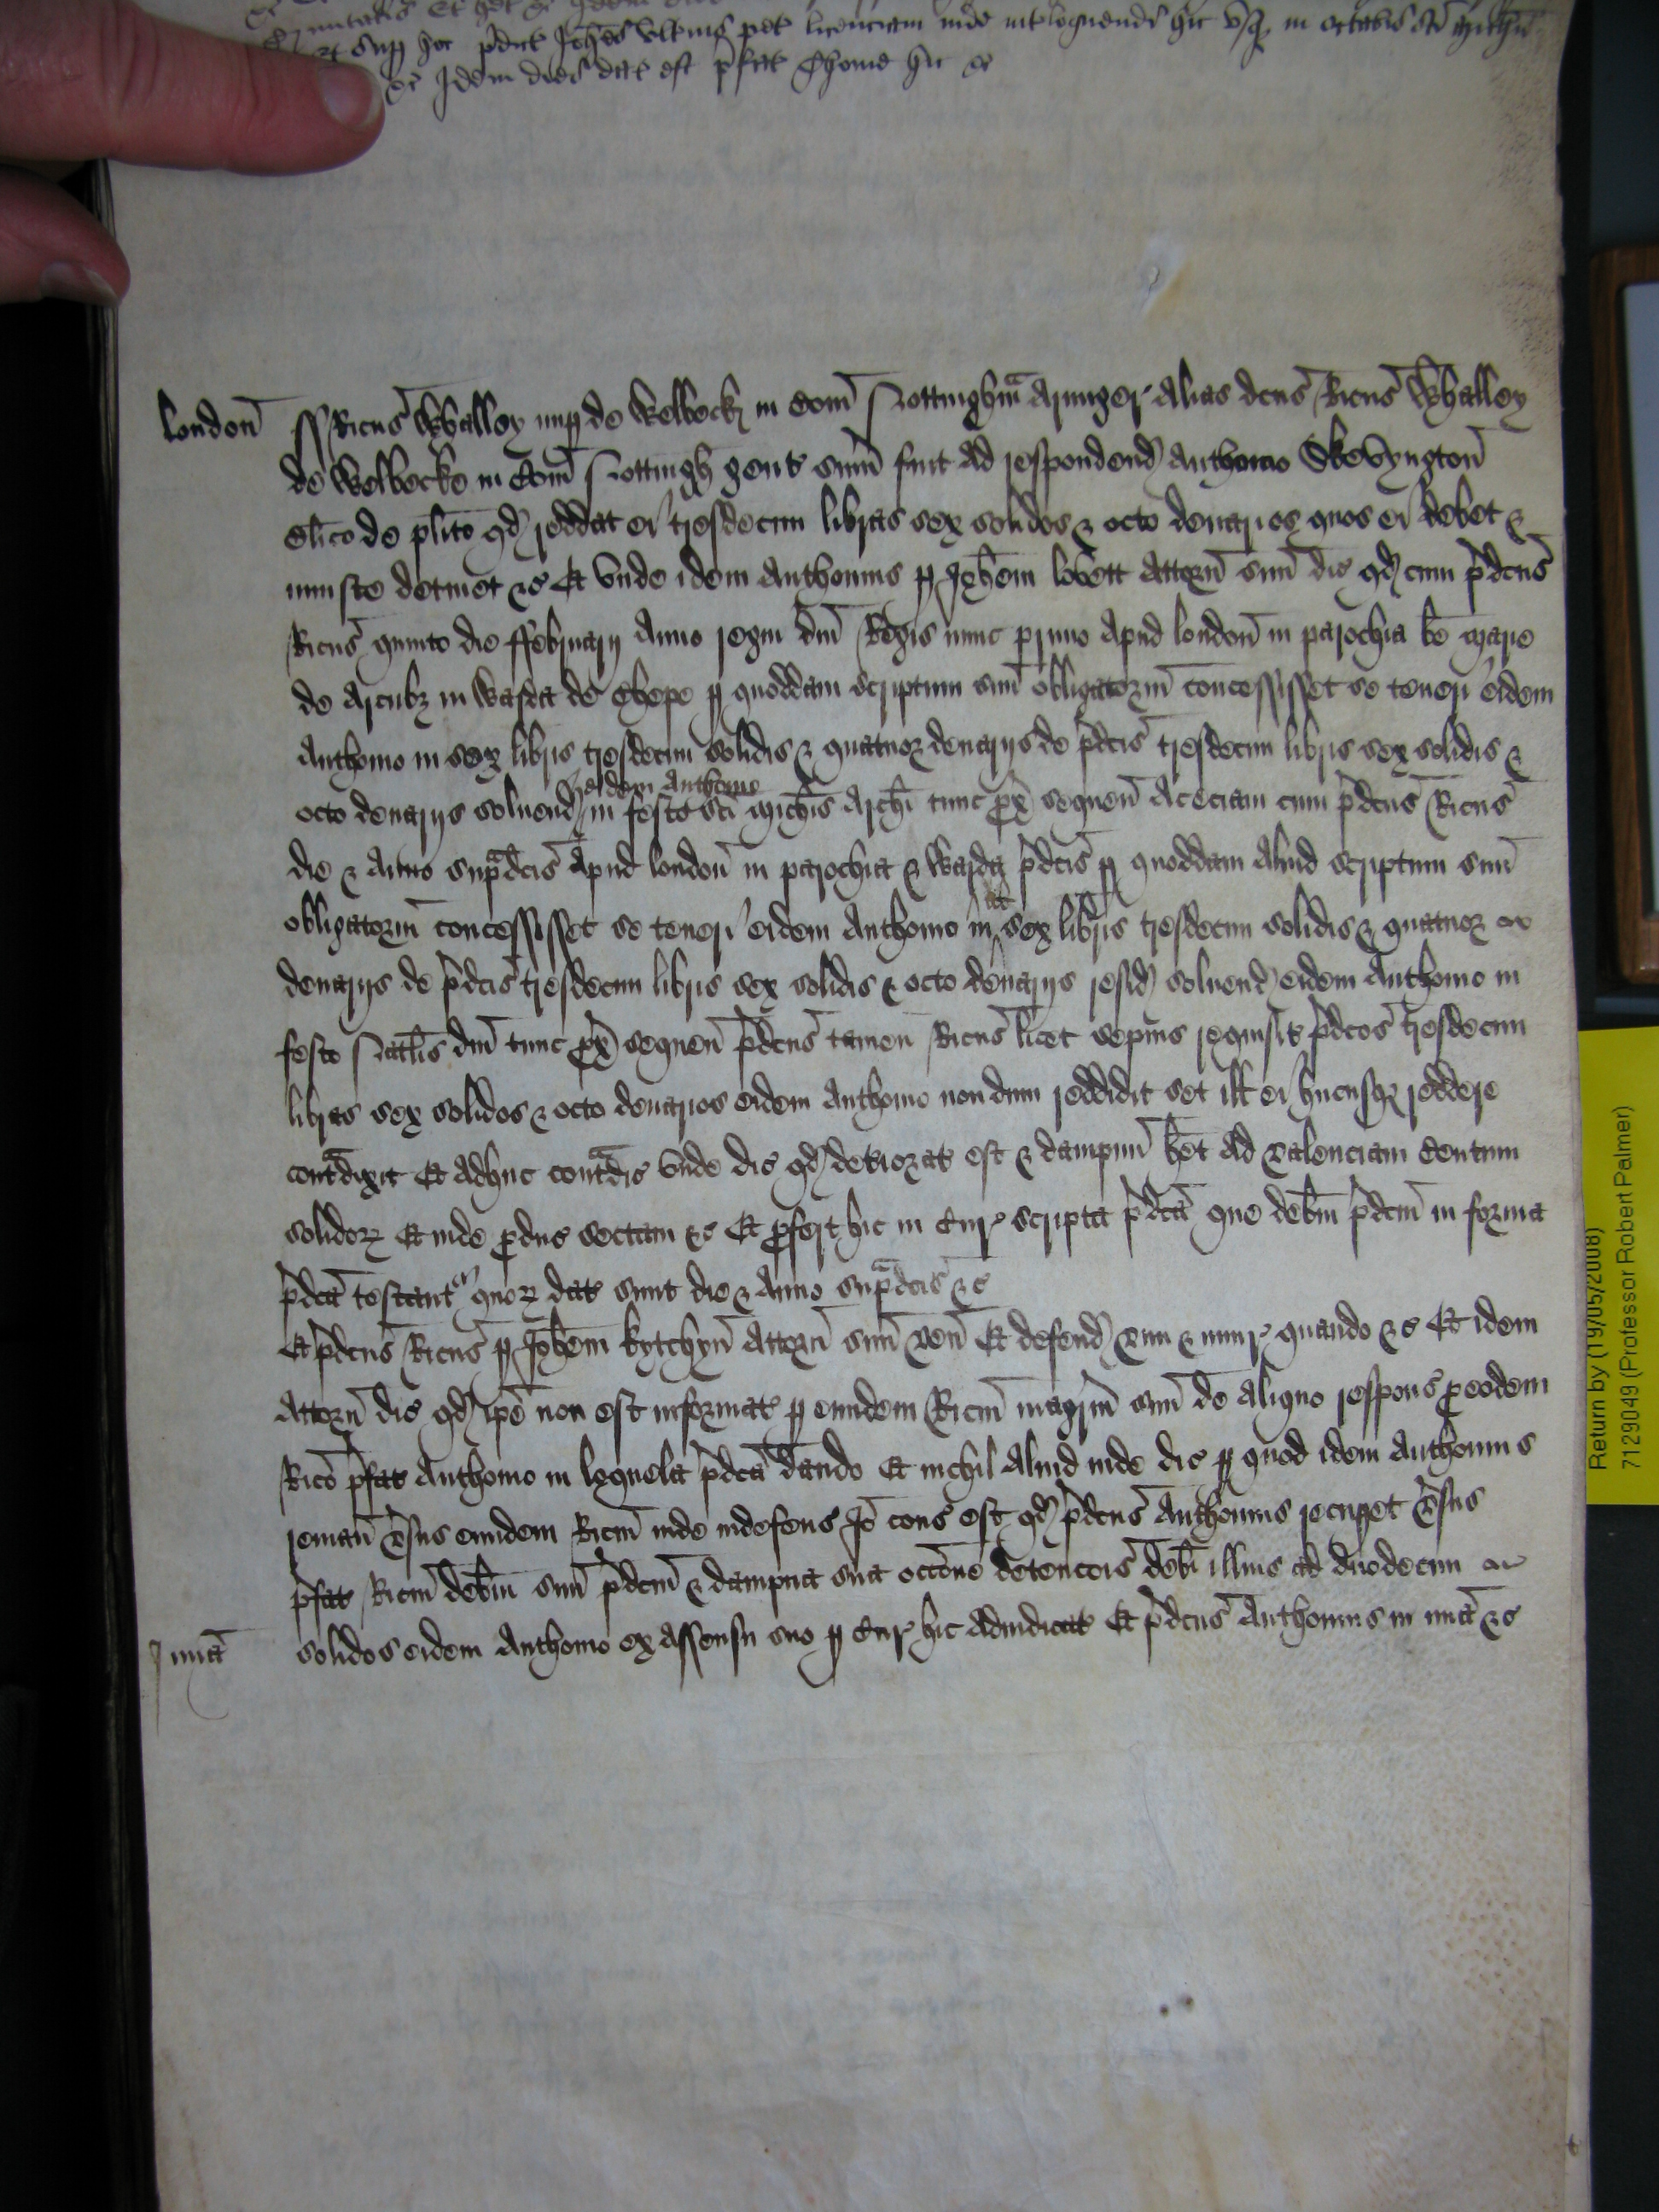 sup hoc pdict Johes ulterius pet licenciam inde interloquendi hic usq in octabis sci Michis
&c Idem dies dat est pfat Thome hic &c
london ss Ricus Whalley nup de Welbeck in Com Nottinghm Armiger Alias dcus Ricus Whalley
de Welbecke in Com Nottingh gent sum fuit Ad respondend Anthonio Skevyngton
Clico de plito qd reddat ei tresdecim libras sex solidos & octo denarios quos ei debet &
iniuste detinet &c Et Unde idem Anthonius p Johem lovett Attorn suu dic qd cum pdcus
Ricus quinto die ffebruarij Anno regni dni Regis nunc primo Apud london in parochia be Marie
de Arcubz in Warda de Chepe p quoddam scriptum suu obligatorm concessisset se teneri eidem
Anthonio in sex libris tresdecim solidis & quatuor denarijs de pdcis tresdecim libris sex solidis &
eidem Anthonio
octo denarijs soluend in festo sci Michis Archi tunc px sequen Aceciam cum pdcus Ricus
die & Anno supdcis Apud london in parochia & Warda pdcis p quoddam Aliud scriptum suu
obligatorm concessisset se teneri eidem Anthonio in sex libris tresdecim solidis & quatuor
denarijs de pdcis tresdecim libris sex solidis & octo denarijs resid soluend eidem Anthonio in
festo Natlis dni tunc px sequen pdcus tamen Ricus licet sepius requisit pdcos tresdecim
libras sex solidos & octo denarios eidem Anthonio nondum reddidit set ill ei hucusqz reddere
contdixit Et Adhuc contdic Unde dic qd deteriorat est & dampnu het Ad valenciam Centum
solidorz Et inde pduc sectam &c Et pfert hic in Cur scripta pdca que debm pdcm in forma
pdca testant quorz dat sunt die & Anno supdcis &c
Et pdcus Ricus p Johem kytchyn Attorn suu ven Et defend vim & iniur quando &c Et idem
Attorn dic qd ipe non est informat p eundem Ricm magrm suu de Aliquo respons p eodem
Rico pfat Anthonio in loquela pdca dando Et nichil Aliud inde dic p quod idem Anthonius
reman vsus eundem Ricm inde indefens Io cons est qd pdcus Anthonius recupet vsus
pfat Ricm debm suu pdcm & dampna sua occone detencois debi illius ad duodecim
mia solidos eidem Anthonio ex Assensu suo p Cur hic Adiudicat Et pdcus Anthonius in mia &c
Return by (19/05/2008)
7129049 (Professor Robert Palmer)